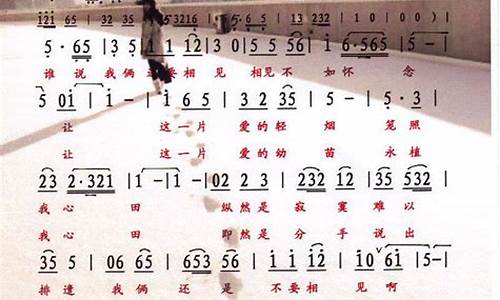 5· 65 | 3 5 | 1 1 12 | 3 0 | 5 5 56 | 1 6·565 | 5 - |
谁说我俩还要相见 相见不如怀念
5 01 | 1 - | 1 6 5 | 3 2 35 | 5 - | 5· 3 |
让 这一片 爱的轻烟 笼照
让 这一片 爱的幼苗 永植
23 2·321 | 1 - | 1 - | 02 2 3 | 232 12 | 35 532 |
我心田 纵然是寂寞难以
我心田 即然是分手说出
35 3 | 06 65 | 653 56 | 1 1 12 | 10 61 | 5 - |
排遣 我俩还是不要相见啊